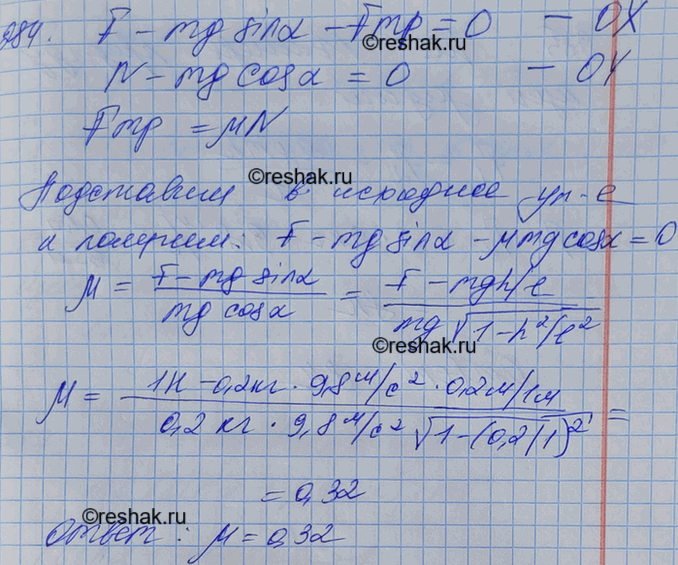 284. F - mg sinα - Fтр = 0 - OX
N - mg cosα = 0 - OY
Fтр = μN
©reshak.ru
Подставим в исходное ур-е
и получим: F - mg sinα - μmg cosα = 0
μ = (F - mg sinα)/(mg cosα) = (F - mgh/l)/(mg√(1 - h²/l²))
©reshak.ru
μ = (1Н - 0,2кг · 9,8м/с² · 0,2м/1м)/(0,2кг · 9,8м/с² √(1 - (0,2/1)²)) =
= 0,32
©reshak.ru
Ответ: μ = 0,32